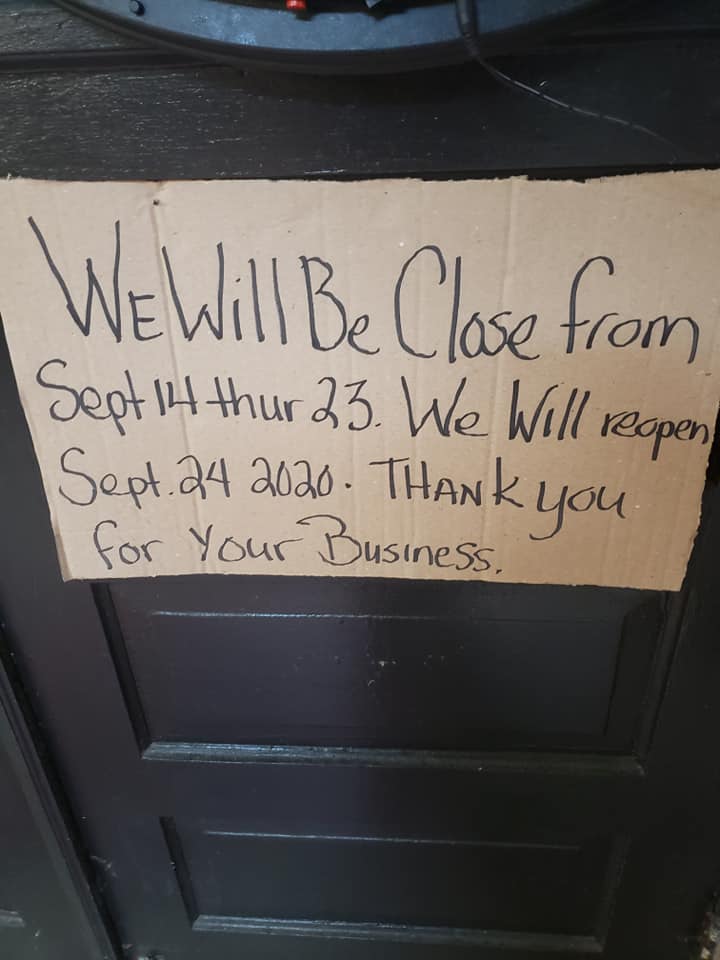 WE Will Be Close from
Sept 14 thur 23. We Will reopen
Sept. 24 2020. THANK you
for Your Business.